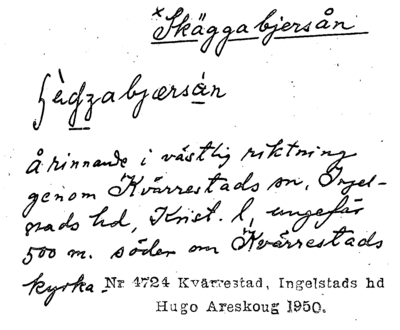 ×Skäggabjersån
å rinnande i västlig riktning
genom Kvärrestads sn, Ingel-
stads hd, Krist. l, ungefär
500 m. söder om Kvärrestads
kyrka.
Nr 4724 Kvärrestad, Ingelstads hd
Hugo Areskoug 1950.